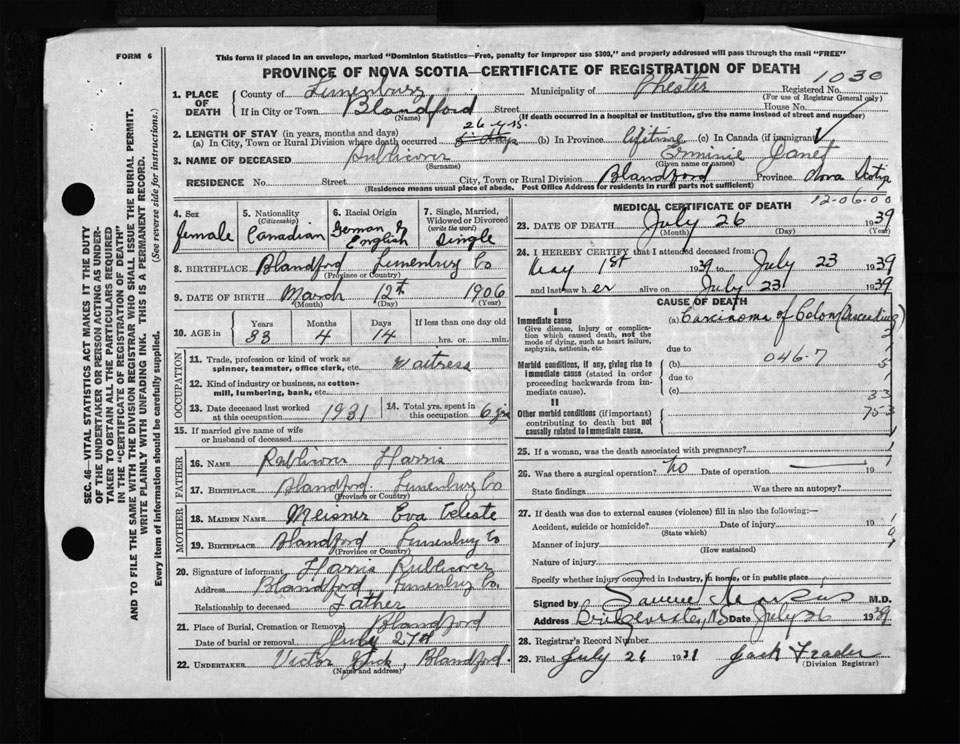 FORM 6
This form if placed in an envelope, marked "Dominion Statistics—Free, penalty for improper use $300," and properly addressed will pass through the mail "FREE"
PROVINCE OF NOVA SCOTIA—CERTIFICATE OF REGISTRATION OF DEATH
1030
1. PLACE OF DEATH
County of Lunenburg Municipality of Chester Registered No.
(For use of Registrar General only)
If in City or Town Blandford Street House No.
(Name) (If death occurred in a hospital or institution, give name instead of street and number)
2. LENGTH OF STAY (in years, months and days)
(a) In City, Town or Rural Division where death occurred 26 yrs. (b) In Province lifetime (c) In Canada (if immigrant)
3. NAME OF DECEASED Publicover Erminie Janet
(Surname) (Given name or names)
RESIDENCE No. Street City, Town or Rural Division Blandford Province Nova Scotia
(Residence means usual place of abode. Post Office Address for residents in rural parts not sufficient)
4. Sex female
5. Nationality (Citizenship) Canadian
6. Racial Origin German & English
7. Single, Married, Widowed or Divorced (write the word) Single
8. BIRTHPLACE Blandford Lunenburg Co
(Province or Country)
9. DATE OF BIRTH March 12th 1906
(Month) (Day) (Year)
10. AGE in Years Months Days If less than one day old
33 4 14 hrs. or min.
OCCUPATION
11. Trade, profession or kind of work as spinner, teamster, office clerk, etc. Waitress
12. Kind of industry or business, as cotton-mill, lumbering, bank, etc.
13. Date deceased last worked at this occupation 1931
14. Total yrs. spent in this occupation 6 yrs
15. If married give name of wife or husband of deceased
FATHER
16. NAME Publicover Harris
17. BIRTHPLACE Blandford Lunenburg Co
(Province or Country)
MOTHER
18. MAIDEN NAME Meisner Eva Celeste
19. BIRTHPLACE Blandford Lunenburg Co
(Province or Country)
20. Signature of informant Harris Publicover
Address Blandford Lunenburg Co.
Relationship to deceased Father
21. Place of Burial, Cremation or Removal Blandford
Date of burial or removal July 27th
22. UNDERTAKER Victor , Blandford.
(Name and address)
MEDICAL CERTIFICATE OF DEATH
12-06-00
23. DATE OF DEATH July 26 1939
(Month) (Day) (Year)
24. I HEREBY CERTIFY that I attended deceased from:
May 1st 1939 to July 23 1939
and last saw her alive on July 23 1939
CAUSE OF DEATH
I
Immediate cause
Give disease, injury or complication which caused death, not the mode of dying, such as heart failure, asphyxia, asthenia, etc.
(a) Carcinoma of Colon (Descending)
due to
Morbid conditions, if any, giving rise to immediate cause (stated in order proceeding backwards from immediate cause).
(b) 046-7
due to
(c)
II
Other morbid conditions (if important) contributing to death but not causally related to immediate cause.
33
75-3
25. If a woman, was the death associated with pregnancy?
26. Was there a surgical operation? no Date of operation 19
State findings Was there an autopsy?
27. If death was due to external causes (violence) fill in also the following:—
Accident, suicide or homicide? Date of injury 19
(State which)
Manner of injury
(How sustained)
Nature of injury
Specify whether injury occurred in industry, in home, or in public place
Signed by Samuel Marcus M.D.
Address Bridgewater, NS Date July 26 1939
28. Registrar's Record Number
29. Filed July 26 Jack
(Division Registrar)
SEC. 46—VITAL STATISTICS ACT MAKES IT THE DUTY OF THE UNDERTAKER OR PERSON ACTING AS UNDERTAKER TO OBTAIN ALL THE PARTICULARS REQUIRED IN THE "CERTIFICATE OF REGISTRATION OF DEATH" AND TO FILE THE SAME WITH THE DIVISION REGISTRAR WHO SHALL ISSUE THE BURIAL PERMIT.
WRITE PLAINLY WITH UNFADING INK. THIS IS A PERMANENT RECORD.
Every item of information should be carefully supplied. (See reverse side for instructions.)